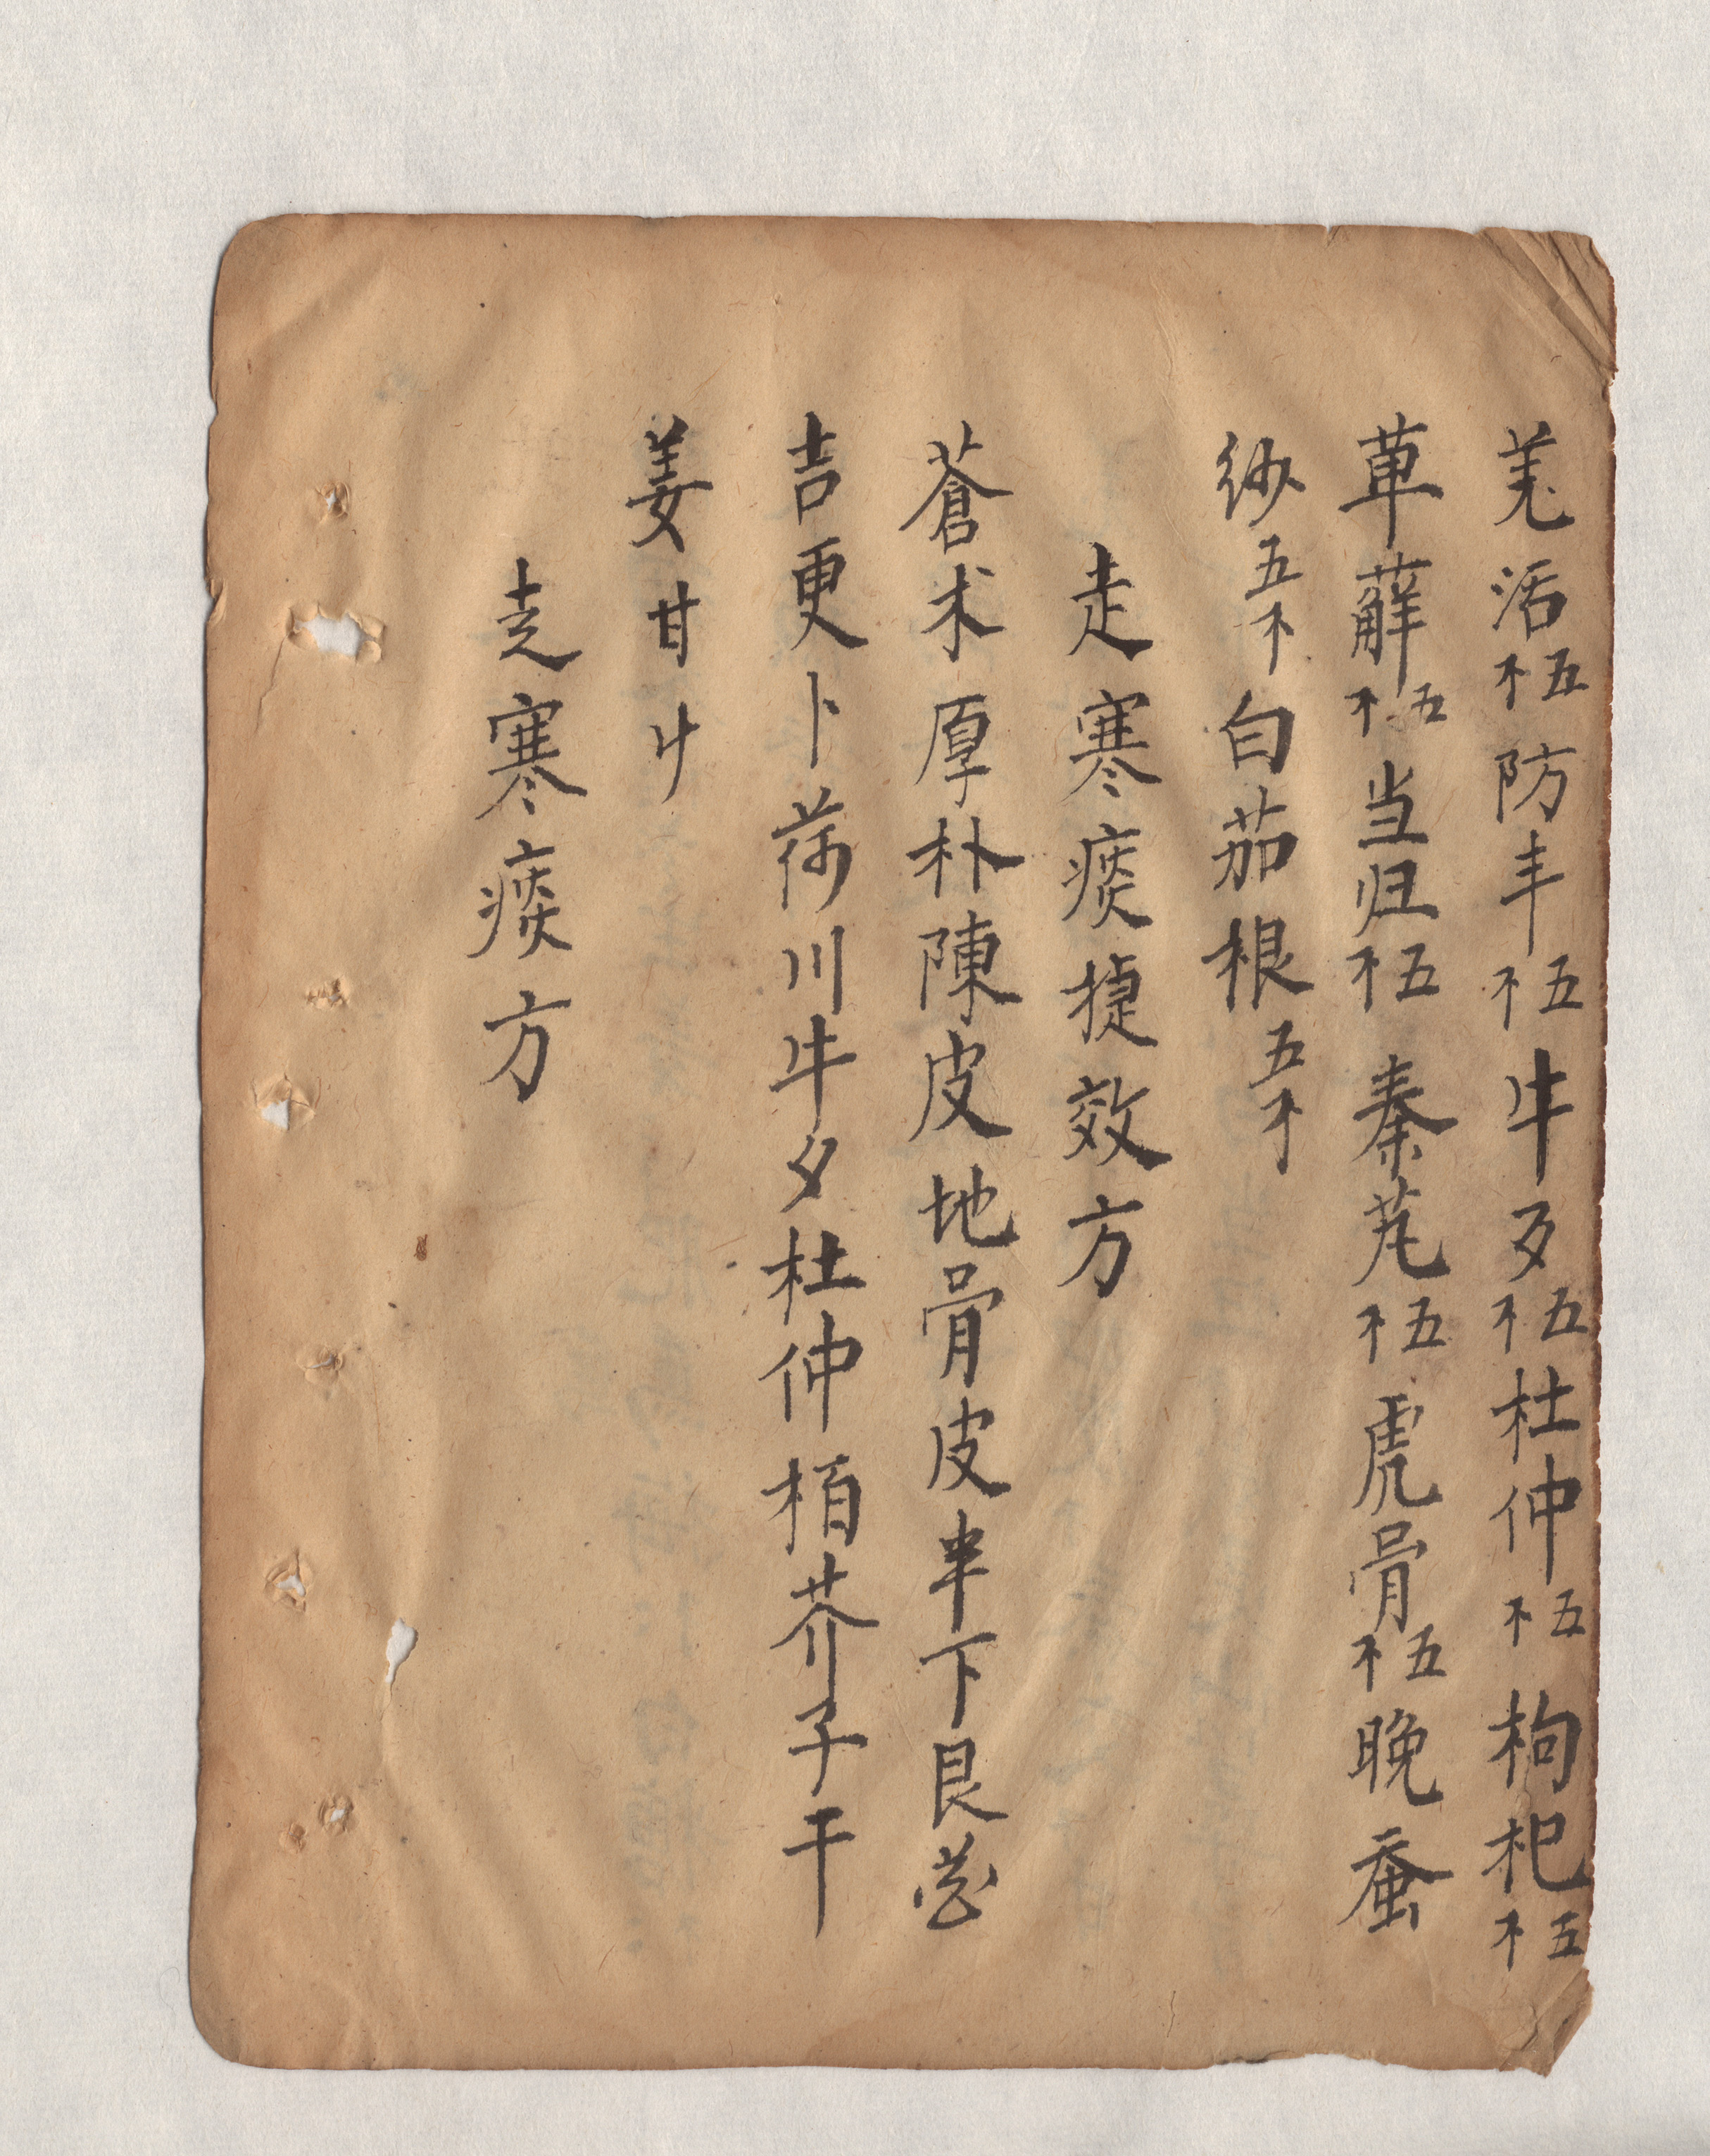 羌活五不防丰五不牛歹五不杜仲五不枸杞五不
萆薢五不当归五不秦艽五不虎骨五不晚蚕
纱五不白茄根五不
走寒痰捷效方
蒼术厚朴陳皮地骨皮半下艮花
吉更卜荷川牛夕杜仲栢芥子干
姜甘廾
走寒痰方